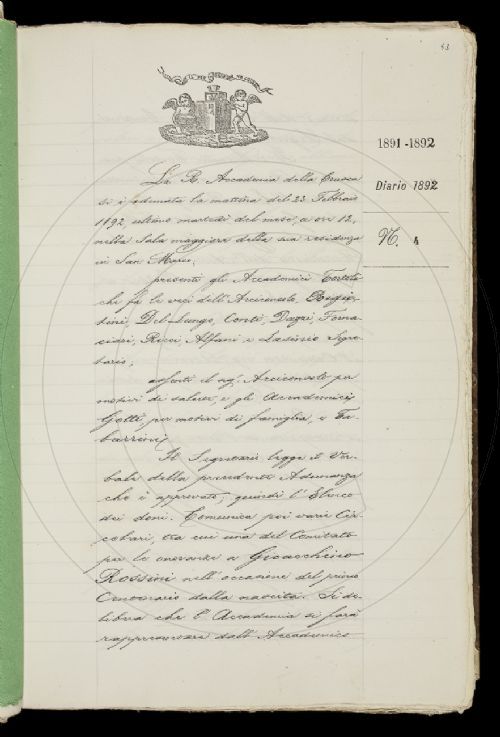 43
1891-1892
Diario 1892
N. 4
La R. Accademia della Crusca
si è adunata la mattina del 23 Febbraio
1892 ultimo martedì del mese, a ore 12,
nella Sala maggiore della sua residenza
in San Marco,
presenti gli Accademici Tortoli
che fa le veci dell'Arciconsolo,
tini, Del-Lungo, Conti, Dazzi, Forna-
ciari, Ricci, Alfani e Segre-
tario;
assenti il sig. Arciconsolo per
motivi di salute, e gli Accademici
Gotti, per motivi di famiglia, e Ta-
barrini.
Il Segretario legge il Ver-
bale della precedente Adunanza
che è approvato; quindi l'Elenco
dei doni. Comunica poi varie Cir-
colari, tra cui una del Comitato
per le onoranze a Gioacchino
Rossini nell'occasione del primo
Centenario dalla nascita. Si de-
libera che l'Accademia si farà
rappresentare dall'Accademico